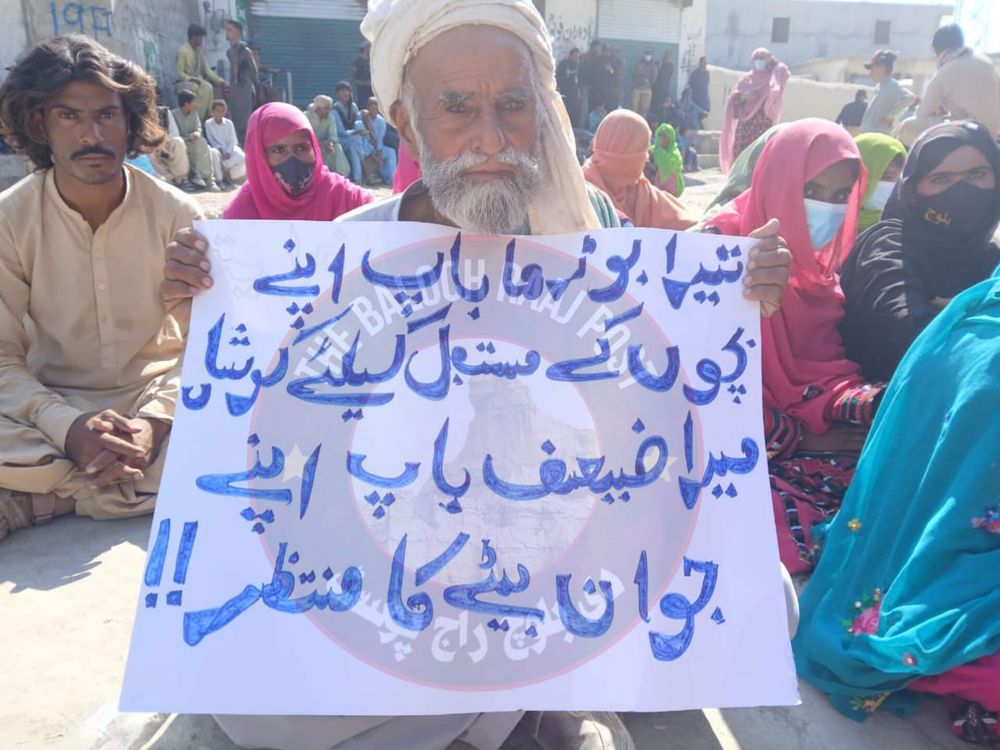 تیرا بوڑھا باپ اپنے
بچوں کے مستقبل کیلئے کوشاں
میرا ضعیف باپ اپنے
جوان بیٹے کا منتظر!!
THE BALOCH RAAJ POST
دی بلوچ راج پوسٹ
بلوچ